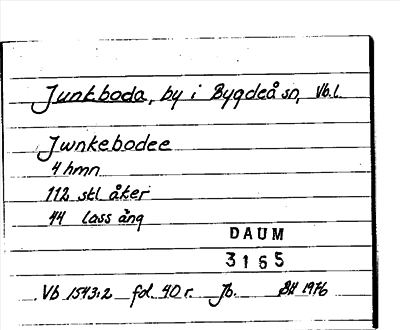 Junkboda, by i Bygdeå sn, Vb.l.
Jwnkebodee
4 hmn
112 skl åker
44 lass äng
DAUM
3165
Vb 1543:2 fol. 40 r. Jb. BH 1976